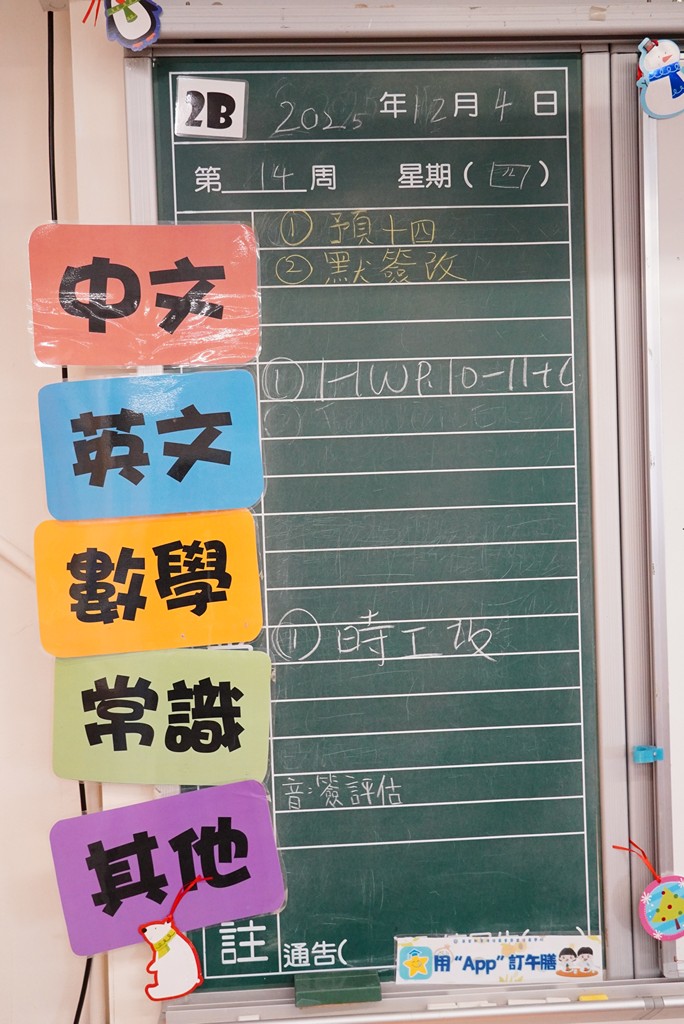 2B 2025年12月4日
第14周 星期(四)
中文
① 預十四
② 默簽改
英文
① HWP.10-11+C
數學
① 時工改
常識
音:簽評估
其他
註 通告(
用“App”訂午膳